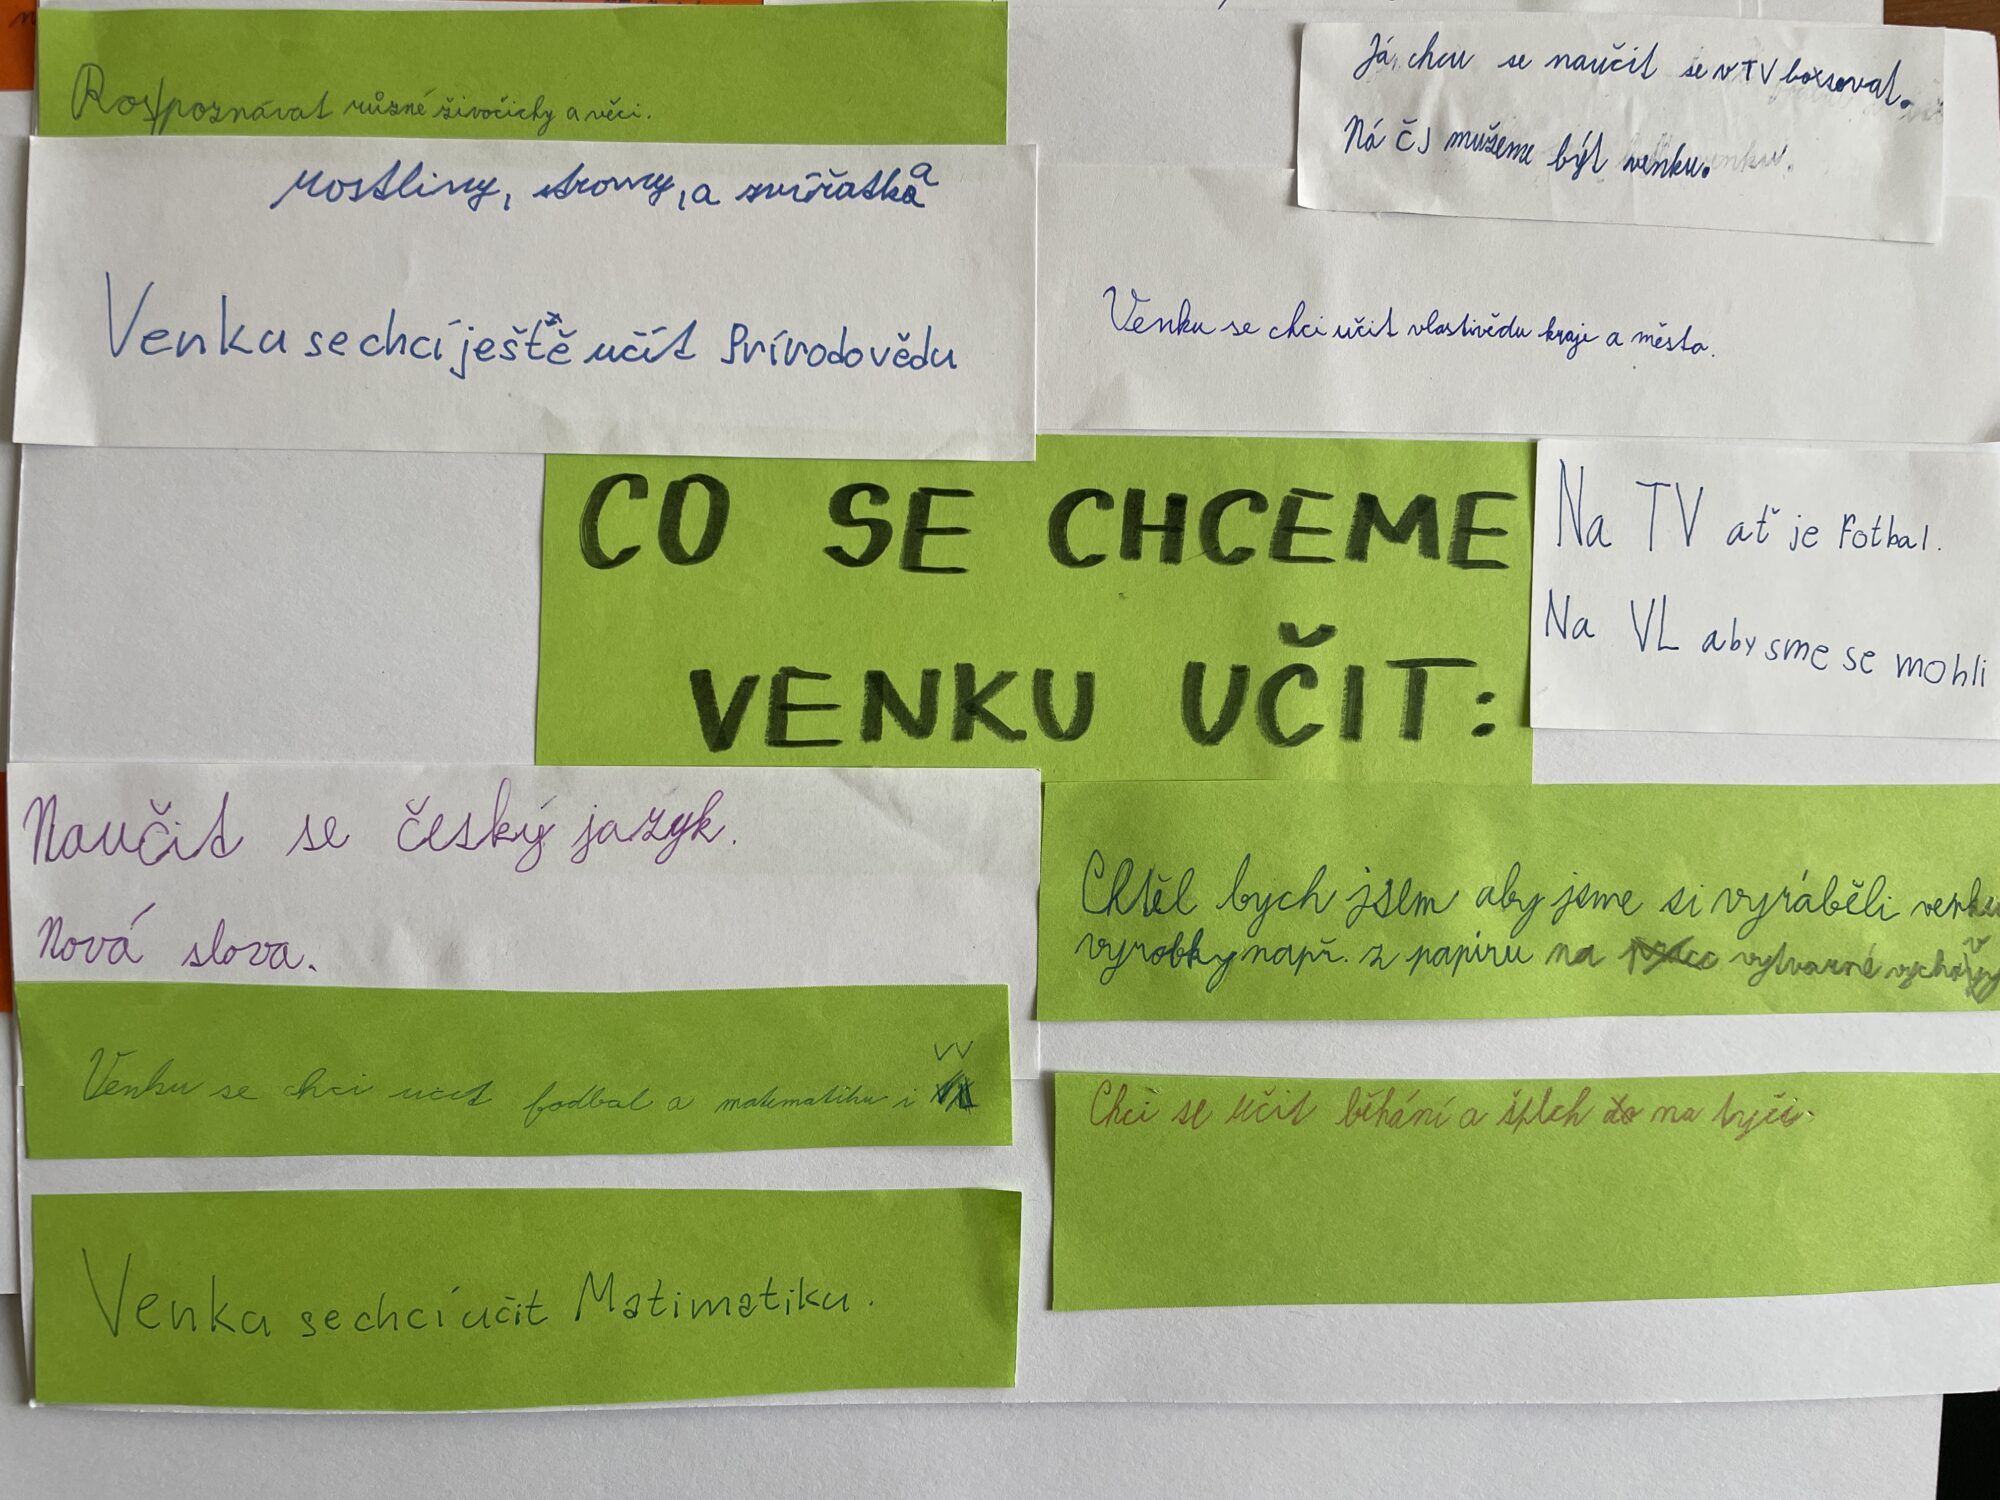 Rospoznávat různé živočichy a věci.
rostliny, stromy, a zvířatka
Venku se chcí ještě učít Prírodovědu
Já chcu se naučit se v TV boxsovat.
Ná ČJ mužeme být venku.
Venku se chci učit vlastivědu kraje a města.
CO SE CHCEME
VENKU UČIT:
Na TV ať je Fotbal.
Na VL aby sme se mohli
Naučit se český jazyk.
Nová slova.
Chtěl bych jsem aby jsme si vyráběli venku
vyrobky např. z papíru na vytvarné vychovy
Venku se chci učit fodbal a matematiku i VV
Chci se učit běhání a šplch na tyči.
Venku se chcí učit Matimatiku.